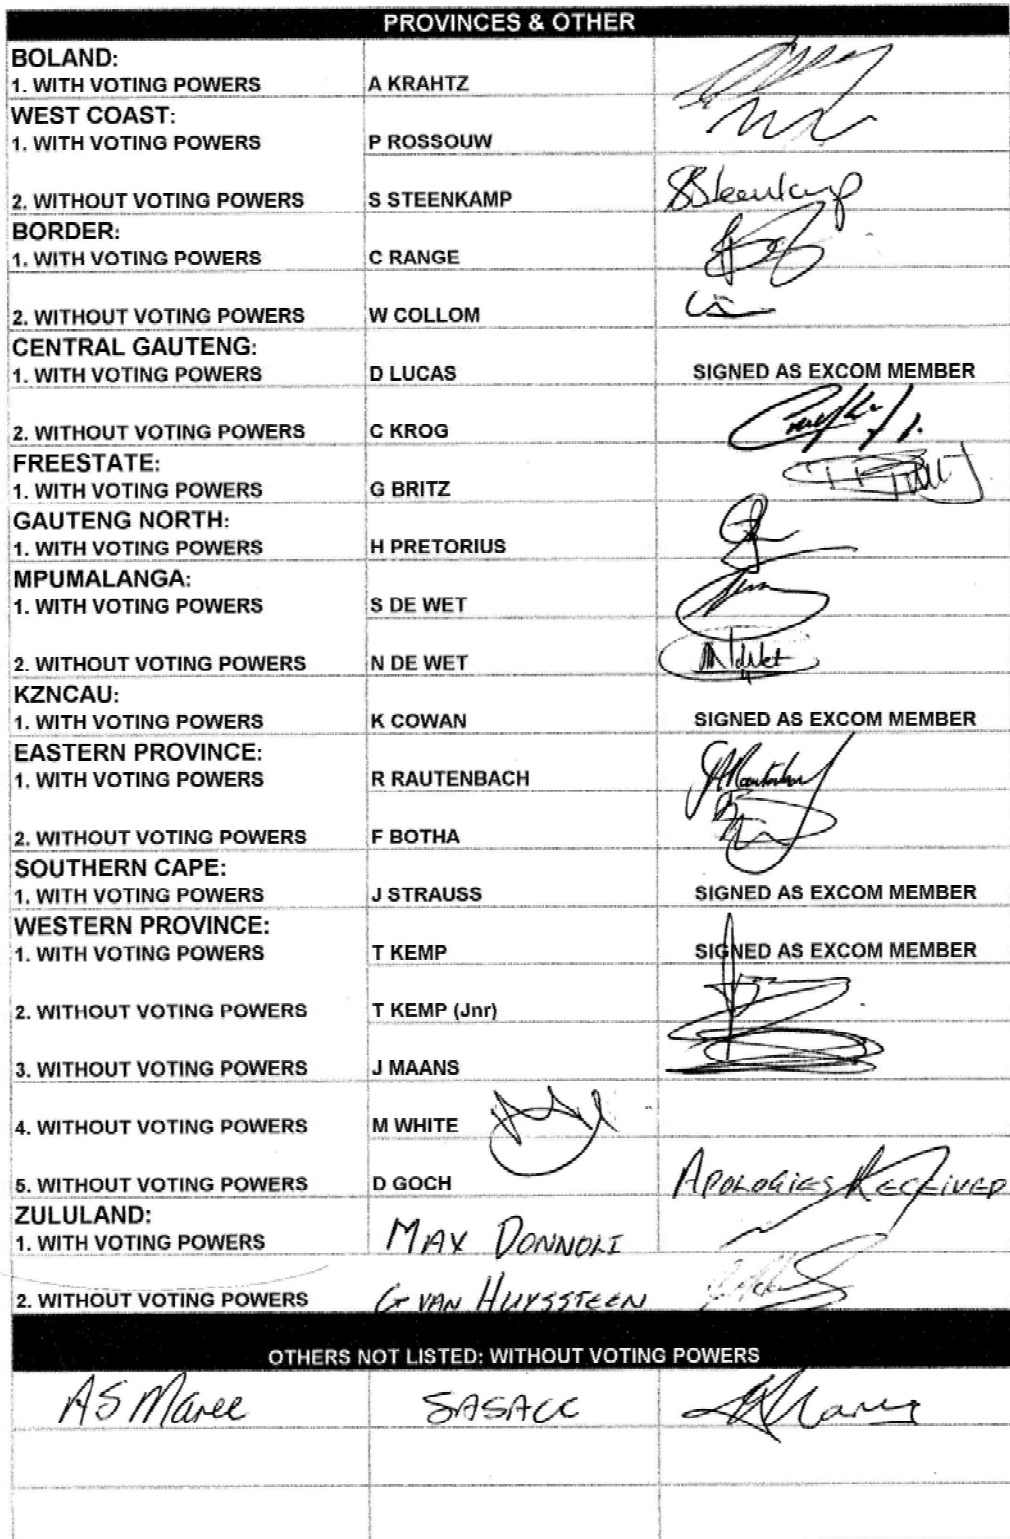 PROVINCES & OTHER
BOLAND:
1. WITH VOTING POWERS A KRAHTZ
WEST COAST:
1. WITH VOTING POWERS P ROSSOUW
2. WITHOUT VOTING POWERS S STEENKAMP SSteenkamp
BORDER:
1. WITH VOTING POWERS C RANGE
2. WITHOUT VOTING POWERS W COLLOM
CENTRAL GAUTENG:
1. WITH VOTING POWERS D LUCAS SIGNED AS EXCOM MEMBER
2. WITHOUT VOTING POWERS C KROG
FREESTATE:
1. WITH VOTING POWERS G BRITZ
GAUTENG NORTH:
1. WITH VOTING POWERS H PRETORIUS
MPUMALANGA:
1. WITH VOTING POWERS S DE WET
2. WITHOUT VOTING POWERS N DE WET NdWet
KZNCAU:
1. WITH VOTING POWERS K COWAN SIGNED AS EXCOM MEMBER
EASTERN PROVINCE:
1. WITH VOTING POWERS R RAUTENBACH
2. WITHOUT VOTING POWERS F BOTHA
SOUTHERN CAPE:
1. WITH VOTING POWERS J STRAUSS SIGNED AS EXCOM MEMBER
WESTERN PROVINCE:
1. WITH VOTING POWERS T KEMP SIGNED AS EXCOM MEMBER
2. WITHOUT VOTING POWERS T KEMP (Jnr)
3. WITHOUT VOTING POWERS J MAANS
4. WITHOUT VOTING POWERS M WHITE
5. WITHOUT VOTING POWERS D GOCH APOLOGIES RECEIVED
ZULULAND:
1. WITH VOTING POWERS MAX DONNOLI
2. WITHOUT VOTING POWERS G VAN HUYSSTEEN
OTHERS NOT LISTED: WITHOUT VOTING POWERS
AS Maree SASACC